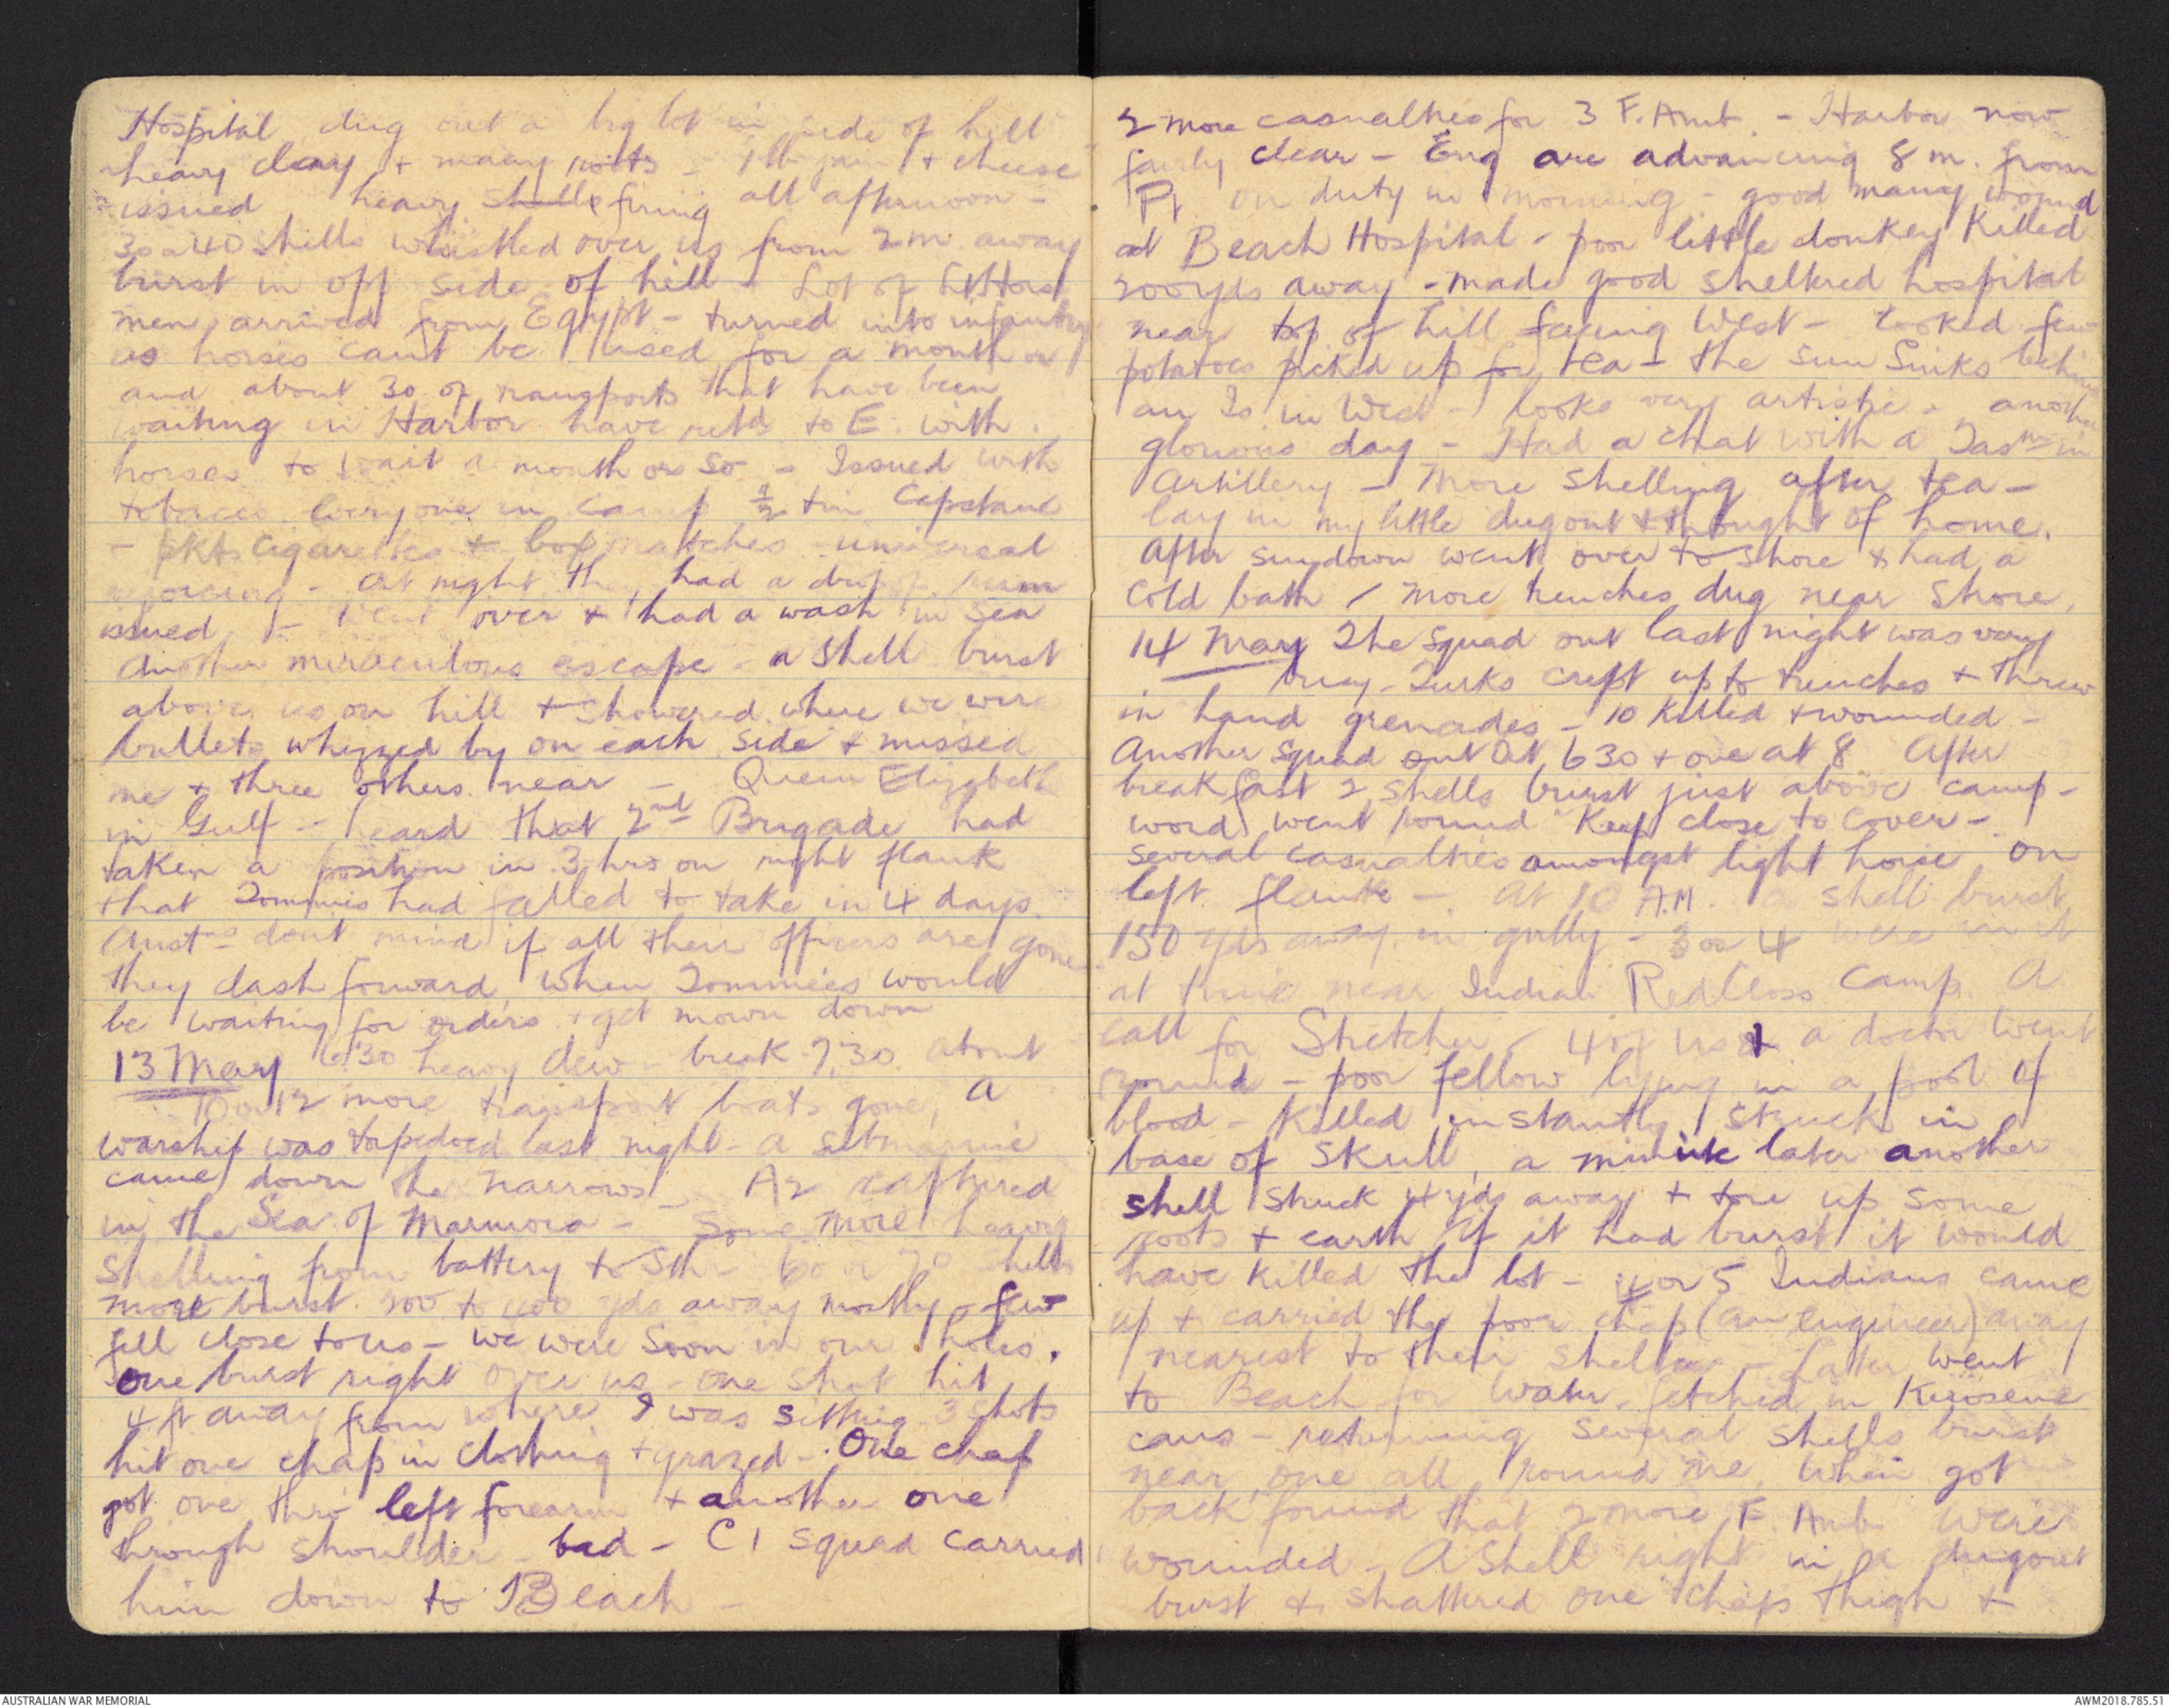 Hospital dug out a big lot in side of hill
heavy clay + many roots - 1 lb jam + cheese
issued heavy shells firing all afternoon -
30 or 40 shells whistled over us from 2 m. away
burst in off side of hill - Lot of Lt Horse
men arrived from Egypt - turned into infantry
as horses cant be used for a month or
and about 30 of transports that have been
waiting in Harbor have retd to E. with
horses to wait a month or so - Issued with
tobacco everyone in camp ½ tin Capstane
- pkts cigarettes + box matches - universal
rejoicing - at night they had a drop of rum
issued - went over + had a wash in sea
Another miraculous escape - a shell burst
above us on hill + showered where we were
bullets whizzed by on each side + missed
me + three others near - Queen Elizabeth
in Gulf - heard that 2nd Brigade had
taken a position in 3 hrs on right flank
that Tommies had failed to take in 4 days.
Austns dont mind if all their officers are gone
they dash forward, when Tommies would
be waiting for orders + get mown down
13 May 6.30 heavy dew - break 7.30 about
10 or 12 more transport boats gone, A
warship was topedoed last night - a submarine
came down the Narrows - A2 captured
in the Sea of Marmora - Some more heavy
shelling from battery to Sth 60 or 70 shells
more burst 200 to 400 yds away mostly, few
fell close to us - we were soon in our holes.
One burst right over us - one shot hit
4 ft away from where I was sitting 3 shots
hit one chap in clothing + grazed - One chap
got one thro left forearm + another one
through shoulder - bad - C1 squad carried
him down to Beach -
2 more casualties for 3 F. Amb. - Harbor now
fairly clear - Eng are advancing 8 m. from
Pt on duty in morning - good many wound
at Beach Hospital - poor little donkey Killed
200 yds away - made good sheltered hospital
near top of hill facing West - cooked few
potatoes picked up for tea - the sun Sinks behind
an Is in West - looks very artistic - another
glorious day - Had a chat with a Tasmn in
Artillery - More shelling after tea -
lay in my little dugout + thought of home.
After sundown went over to shore + had a
cold bath / more trenches dug near Shore,
14 May The squad out last night was very
busy - Turks crept up to trenches + threw
in hand grenades - 10 Killed + wounded -
Another squad out at 6 30 + one at 8 After
breakfast 2 shells burst just above camp -
word went round "Keep close to cover -
several casualties amongst light horse on
left flank - At 10 A.M. a shell burst
150 yds away in gully - 3 or 4 were in it
at time near Indian Red Cross Camp. A
call for Stretcher - 4 of us + a doctor went
round - poor fellow lying in a pool of
blood - Killed instantly, struck in
base of Skull, a minute later another
shell struck 4 yds away + tore up some
roots + earth If it had burst it would
have killed the lot - 4 or 5 Indians came
up + carried the poor chap (an engineer) away
nearest to their shelter - Later went
to Beach for water, fetched in Kerosene
cans - returning several shells burst
near, one all round me, when got
back found that 2 more F. Amb were
wounded - A shell right in a dugout
burst & shattered one chaps thigh +
AUSTRALIAN WAR MEMORIAL
AWM2018.785.51